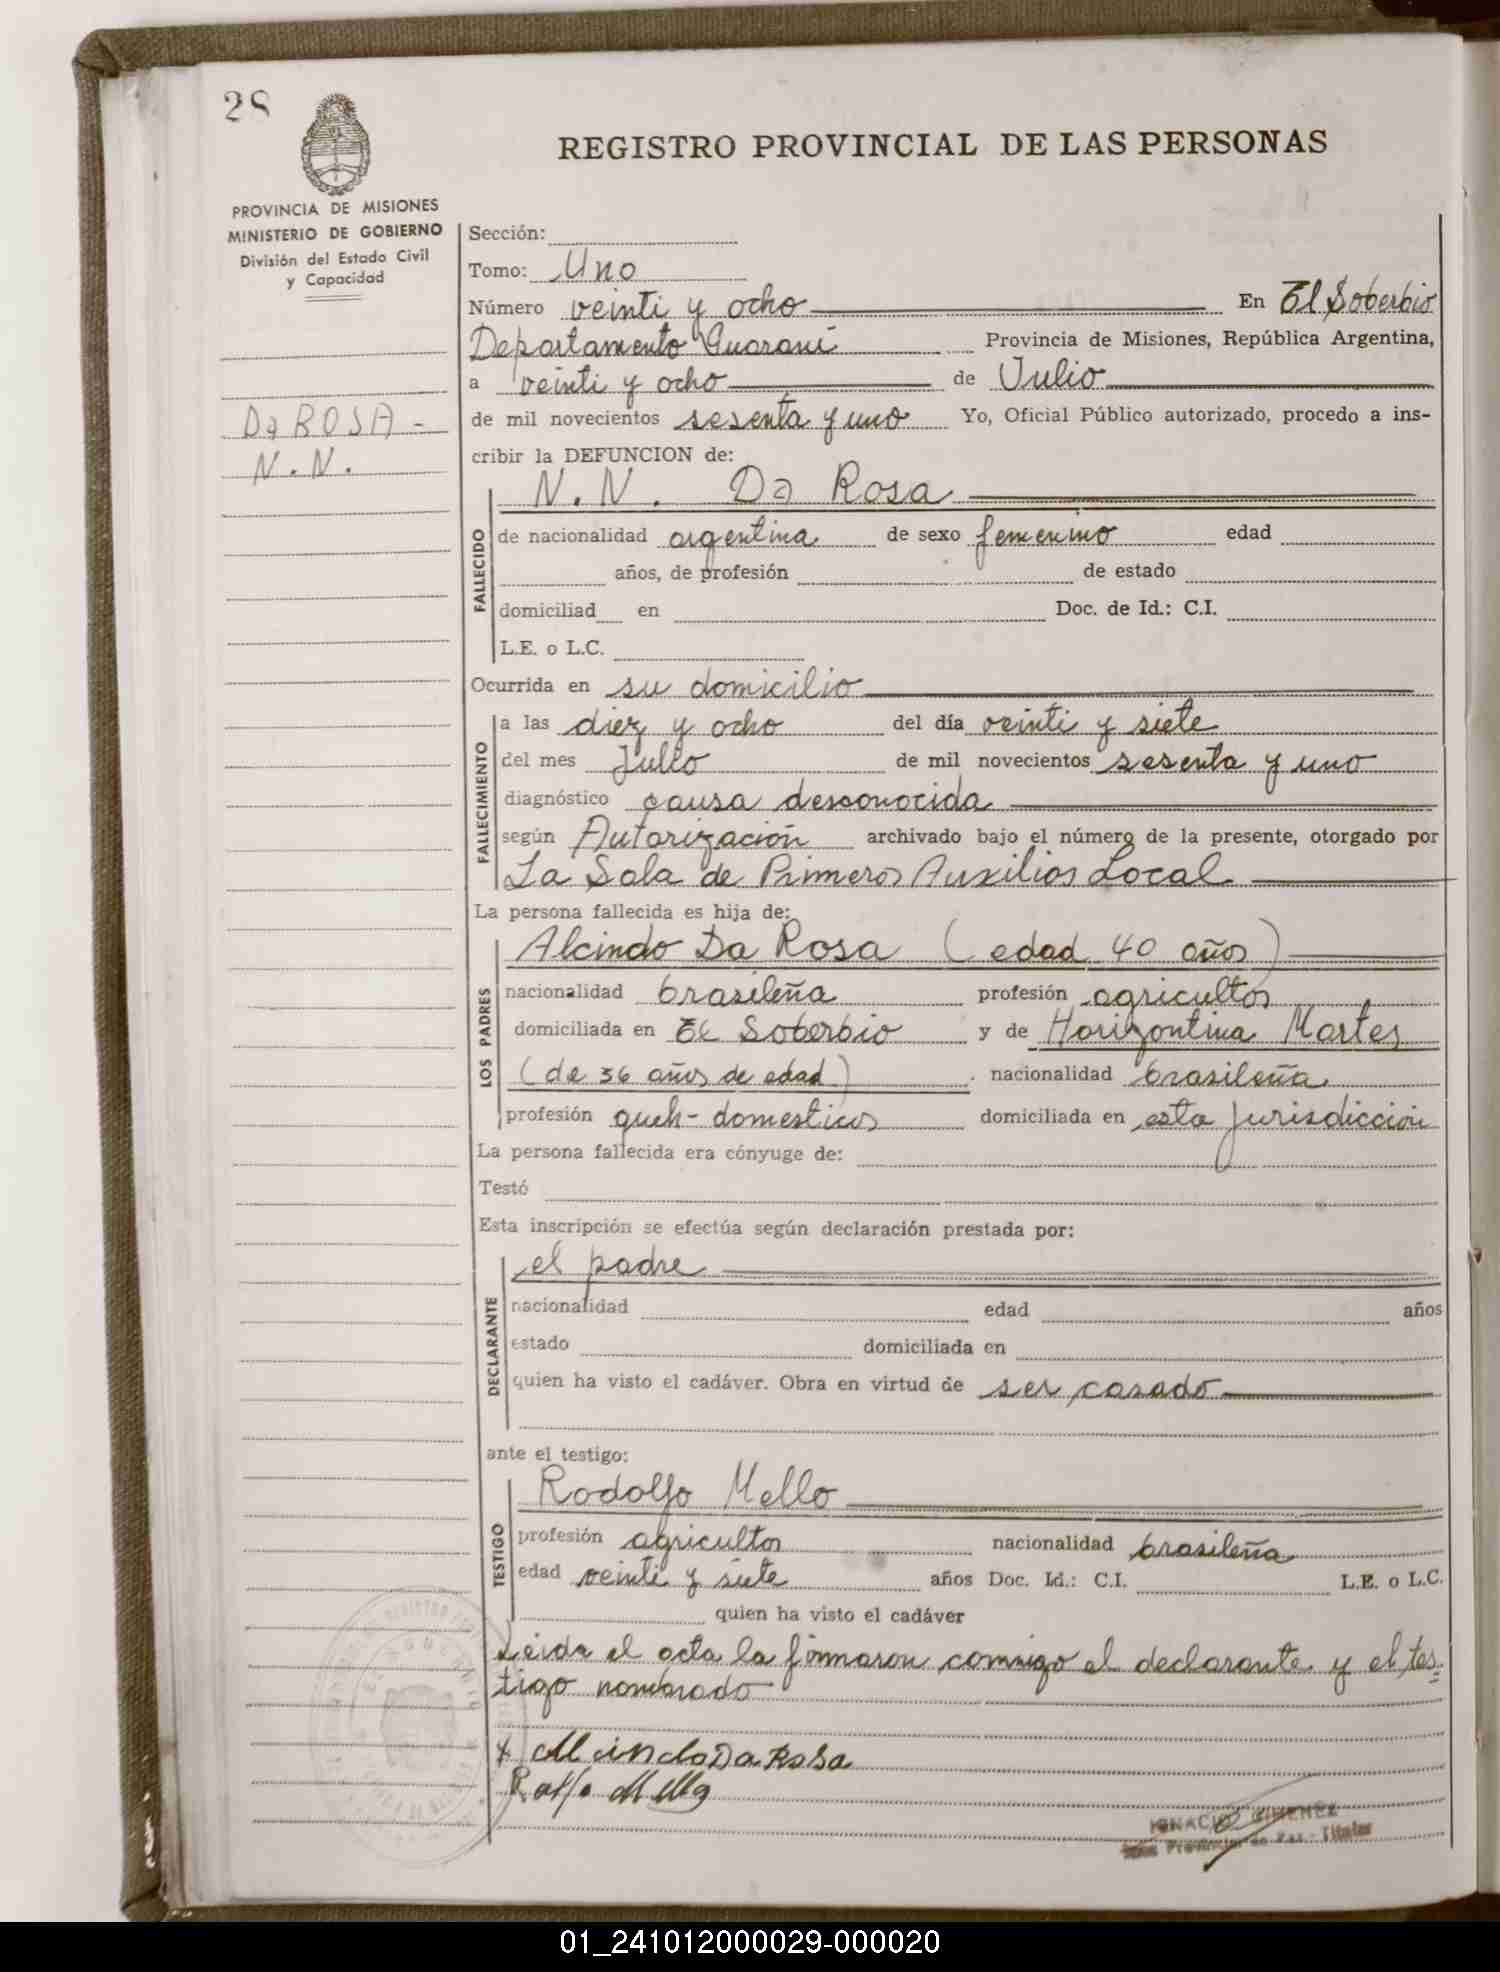 28
REGISTRO PROVINCIAL DE LAS PERSONAS
PROVINCIA DE MISIONES
MINISTERIO DE GOBIERNO
División del Estado Civil
y Capacidad
Da ROSA -
N.N.
Sección:
Tomo: Uno
Número veinti y ocho En El Soberbio
Departamento Guaraní Provincia de Misiones, República Argentina,
a veinti y ocho de Julio
de mil novecientos sesenta y uno Yo, Oficial Público autorizado, procedo a ins-
cribir la DEFUNCION de:
N.N. Da Rosa
FALLECIDO
de nacionalidad argentina de sexo femenino edad
años, de profesión de estado
domiciliad en Doc. de Id.: C.I.
L.E. o L.C.
Ocurrida en su domicilio
FALLECIMIENTO
a las diez y ocho del día veinti y siete
del mes Julio de mil novecientos sesenta y uno
diagnóstico causa desconocida
según Autorización archivado bajo el número de la presente, otorgado por
La Sala de Primeros Auxilios Local
La persona fallecida es hija de:
LOS PADRES
Alcindo Da Rosa (edad 40 años)
nacionalidad brasileña profesión agricultor
domiciliada en El Soberbio y de Horizontina Martes
(de 36 años de edad) nacionalidad brasileña
profesión queh-domesticos domiciliada en esta Jurisdicción
La persona fallecida era cónyuge de:
Testó
Esta inscripción se efectúa según declaración prestada por:
DECLARANTE
el padre
nacionalidad edad años
estado domiciliada en
quien ha visto el cadáver. Obra en virtud de ser casado
ante el testigo:
TESTIGO
Rodolfo Mello
profesión agricultor nacionalidad brasileña
edad veinti y siete años Doc. Id.: C.I. L.E. o L.C.
quien ha visto el cadáver
Leida el acta la firmaron conmigo el declarante y el tes=
tigo nombrado
Da Rosa
IGNACIO GIMENEZ
Provincial de Paz - Titular
01_241012000029-000020